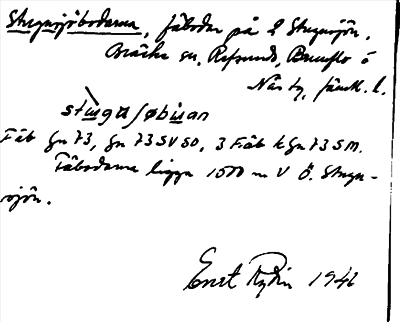 Stugusjöbodarna, fäbodar på L Stugusjön,
Bräcke sn, Refsunds, Brunflo o
Näs tg, Jämtl. l.
stugɑʃøbuɑn
Fäb gn 73, gn 73 SV SO, 3 Fäb kgn 73 SM.
Fäbodarna ligga 1500 m V Ö. Stugu-
sjön.
Ernst Rydin 1946